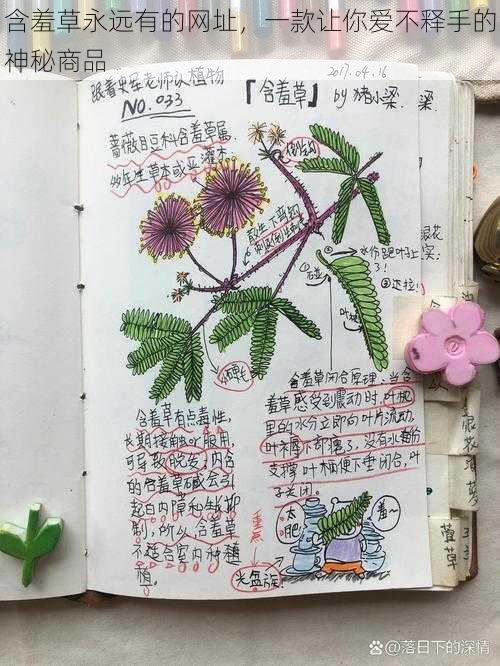 含羞草永远有的网址，一款让你爱不释手的
神秘商品
2017.04.16
跟着史军老师认植物
NO.033
「含羞草」 by 猪小梁.
梁.
蔷薇目豆科含羞草属
多年生草本或亚灌木
水份跑叶上
了!
含羞草闭合原理:当含
羞草感受到震动时,叶枕
里的水分立即向叶片流动,
叶褥下部瘪了,没有水份
支撑叶柄便下垂闭合,叶
子关闭。
含羞草有点毒性,
长期接触或服用,
可导致脱发;内含
的含羞草碱会引
起白内障和生长抑
制,所以,含羞草
不适合室内种植
植。
重点
光盆族!
太
肥!
羞~
百度 @落日下的深情